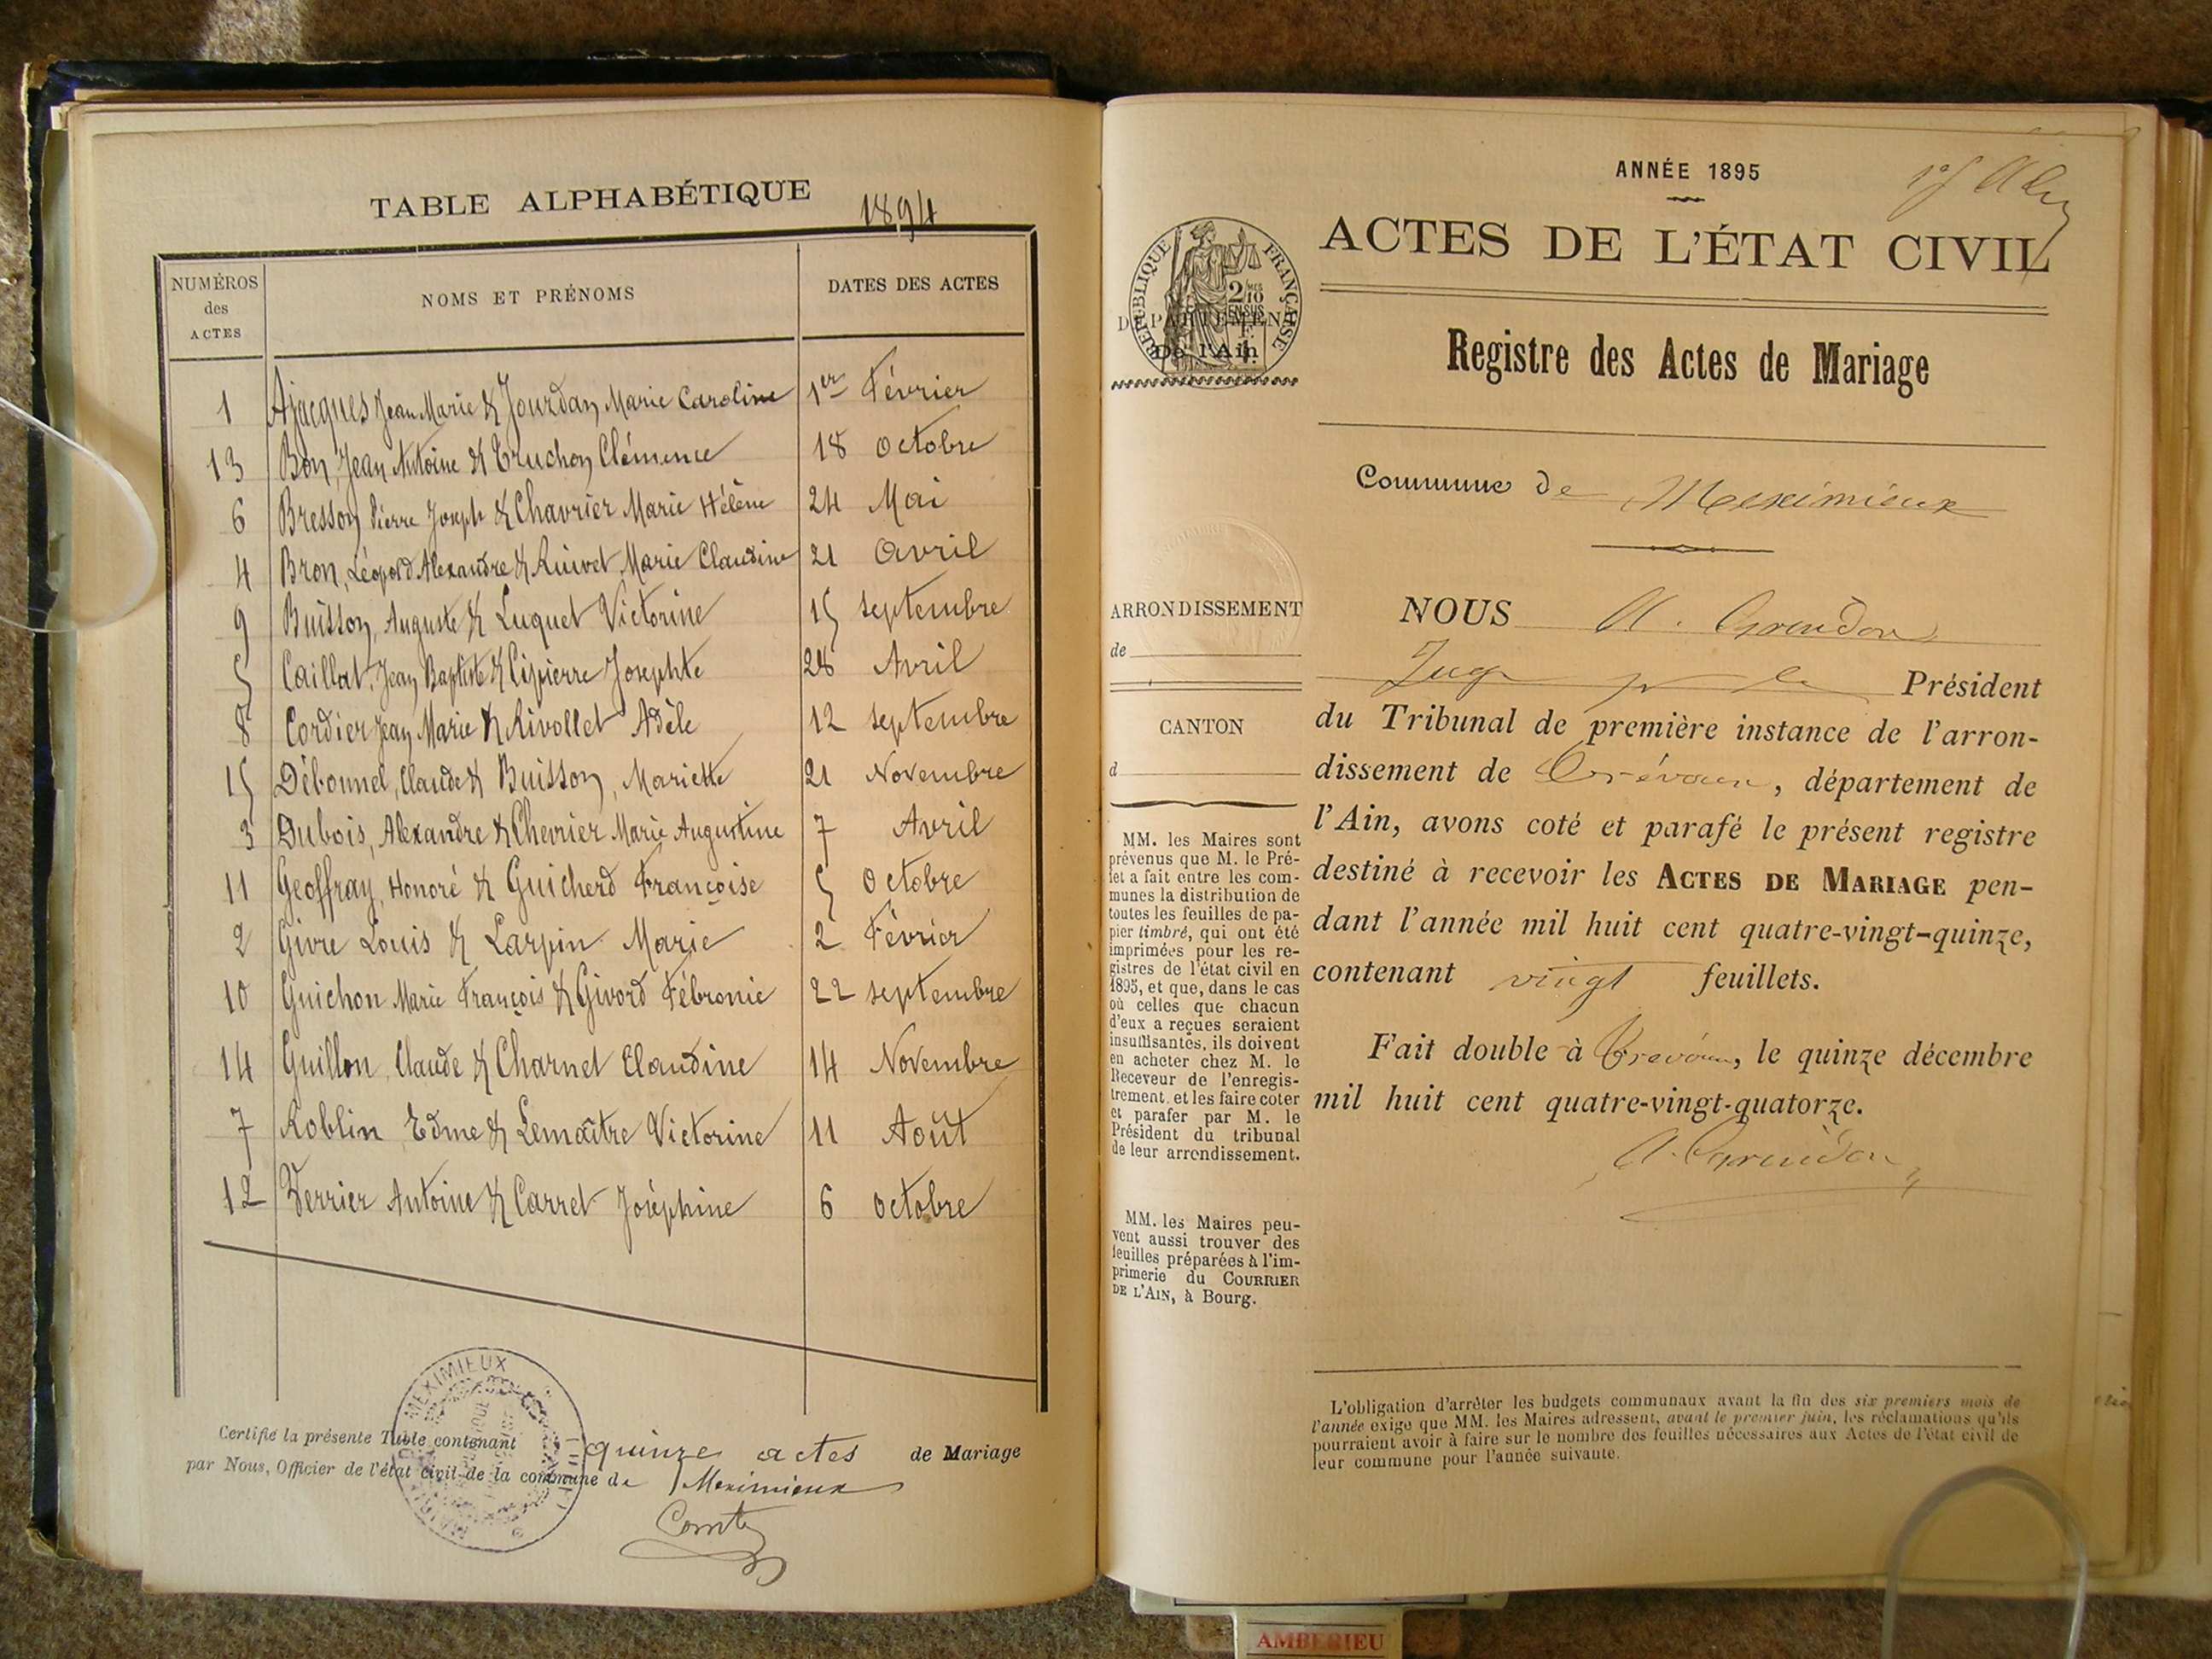 TABLE ALPHABÉTIQUE 1894
NUMÉROS des ACTES
NOMS ET PRÉNOMS
DATES DES ACTES
1 Ajacques Jean Marie & Jourdan Marie Caroline 1er Février
13 Bon, Jean Antoine & Truchon Clémence 18 Octobre
6 Bresson Pierre Joseph & Chavrier Marie Hélène 24 Mai
4 Bron, Léopold Alexandre & Ruivet Marie Claudine 21 Avril
9 Buisson, Auguste & Luquet Victorine 15 septembre
5 Caillat, Jean Baptiste & Cipierre Josephte 28 Avril
8 Cordier Jean Marie & Rivollet Adèle 12 septembre
15 Débonnel, Claude & Buisson, Mariette 21 Novembre
3 Dubois, Alexandre & Chevrier Marie Augustine 7 Avril
11 Geoffray, Honoré & Guicherd Françoise 5 Octobre
2 Givre Louis & Larpin Marie 2 Février
10 Guichon Marie François & Givord Fébronie 22 septembre
14 Guillon, Claude & Charnet Claudine 14 Novembre
7 Roblin, Edme & Lemaître Victorine 11 Août
12 Verrier Antoine & Carret Joséphine 6 Octobre
Certifié la présente Table contenant quinze actes de Mariage
par Nous, Officier de l'état civil de la commune de Meximieux
MEXIMIEUX
Comte
ANNÉE 1895
ACTES DE L'ÉTAT CIVIL
RÉPUBLIQUE FRANÇAISE
2/10 EN SUS
DÉPARTEMENT
De l'Ain
Registre des Actes de Mariage
Commune de Meximieux
ARRONDISSEMENT
de
CANTON
d
MM. les Maires sont
prévenus que M. le Pré-
fet a fait entre les com-
munes la distribution de
toutes les feuilles de pa-
pier timbré, qui ont été
imprimées pour les re-
gistres de l'état civil en
1895, et que, dans le cas
où celles que chacun
d'eux a reçues seraient
insuffisantes, ils doivent
en acheter chez M. le
Receveur de l'enregis-
trement, et les faire coter
et parafer par M. le
Président du tribunal
de leur arrondissement.
MM. les Maires peu-
vent aussi trouver des
feuilles préparées à l'im-
primerie du COURRIER
DE L'AIN, à Bourg.
NOUS A. Grandon
Juge pr le Président
du Tribunal de première instance de l'arron-
dissement de Trévoux, département de
l'Ain, avons coté et parafé le présent registre
destiné à recevoir les ACTES DE MARIAGE pen-
dant l'année mil huit cent quatre-vingt-quinze,
contenant vingt feuillets.
Fait double à Trévoux, le quinze décembre
mil huit cent quatre-vingt-quatorze.
A. Grandon
L'obligation d'arrêter les budgets communaux avant la fin des six premiers mois de
l'année exige que MM. les Maires adressent, avant le premier juin, les réclamations qu'ils
pourraient avoir à faire sur le nombre des feuilles nécessaires aux Actes de l'état civil de
leur commune pour l'année suivante.
AMBERIEU